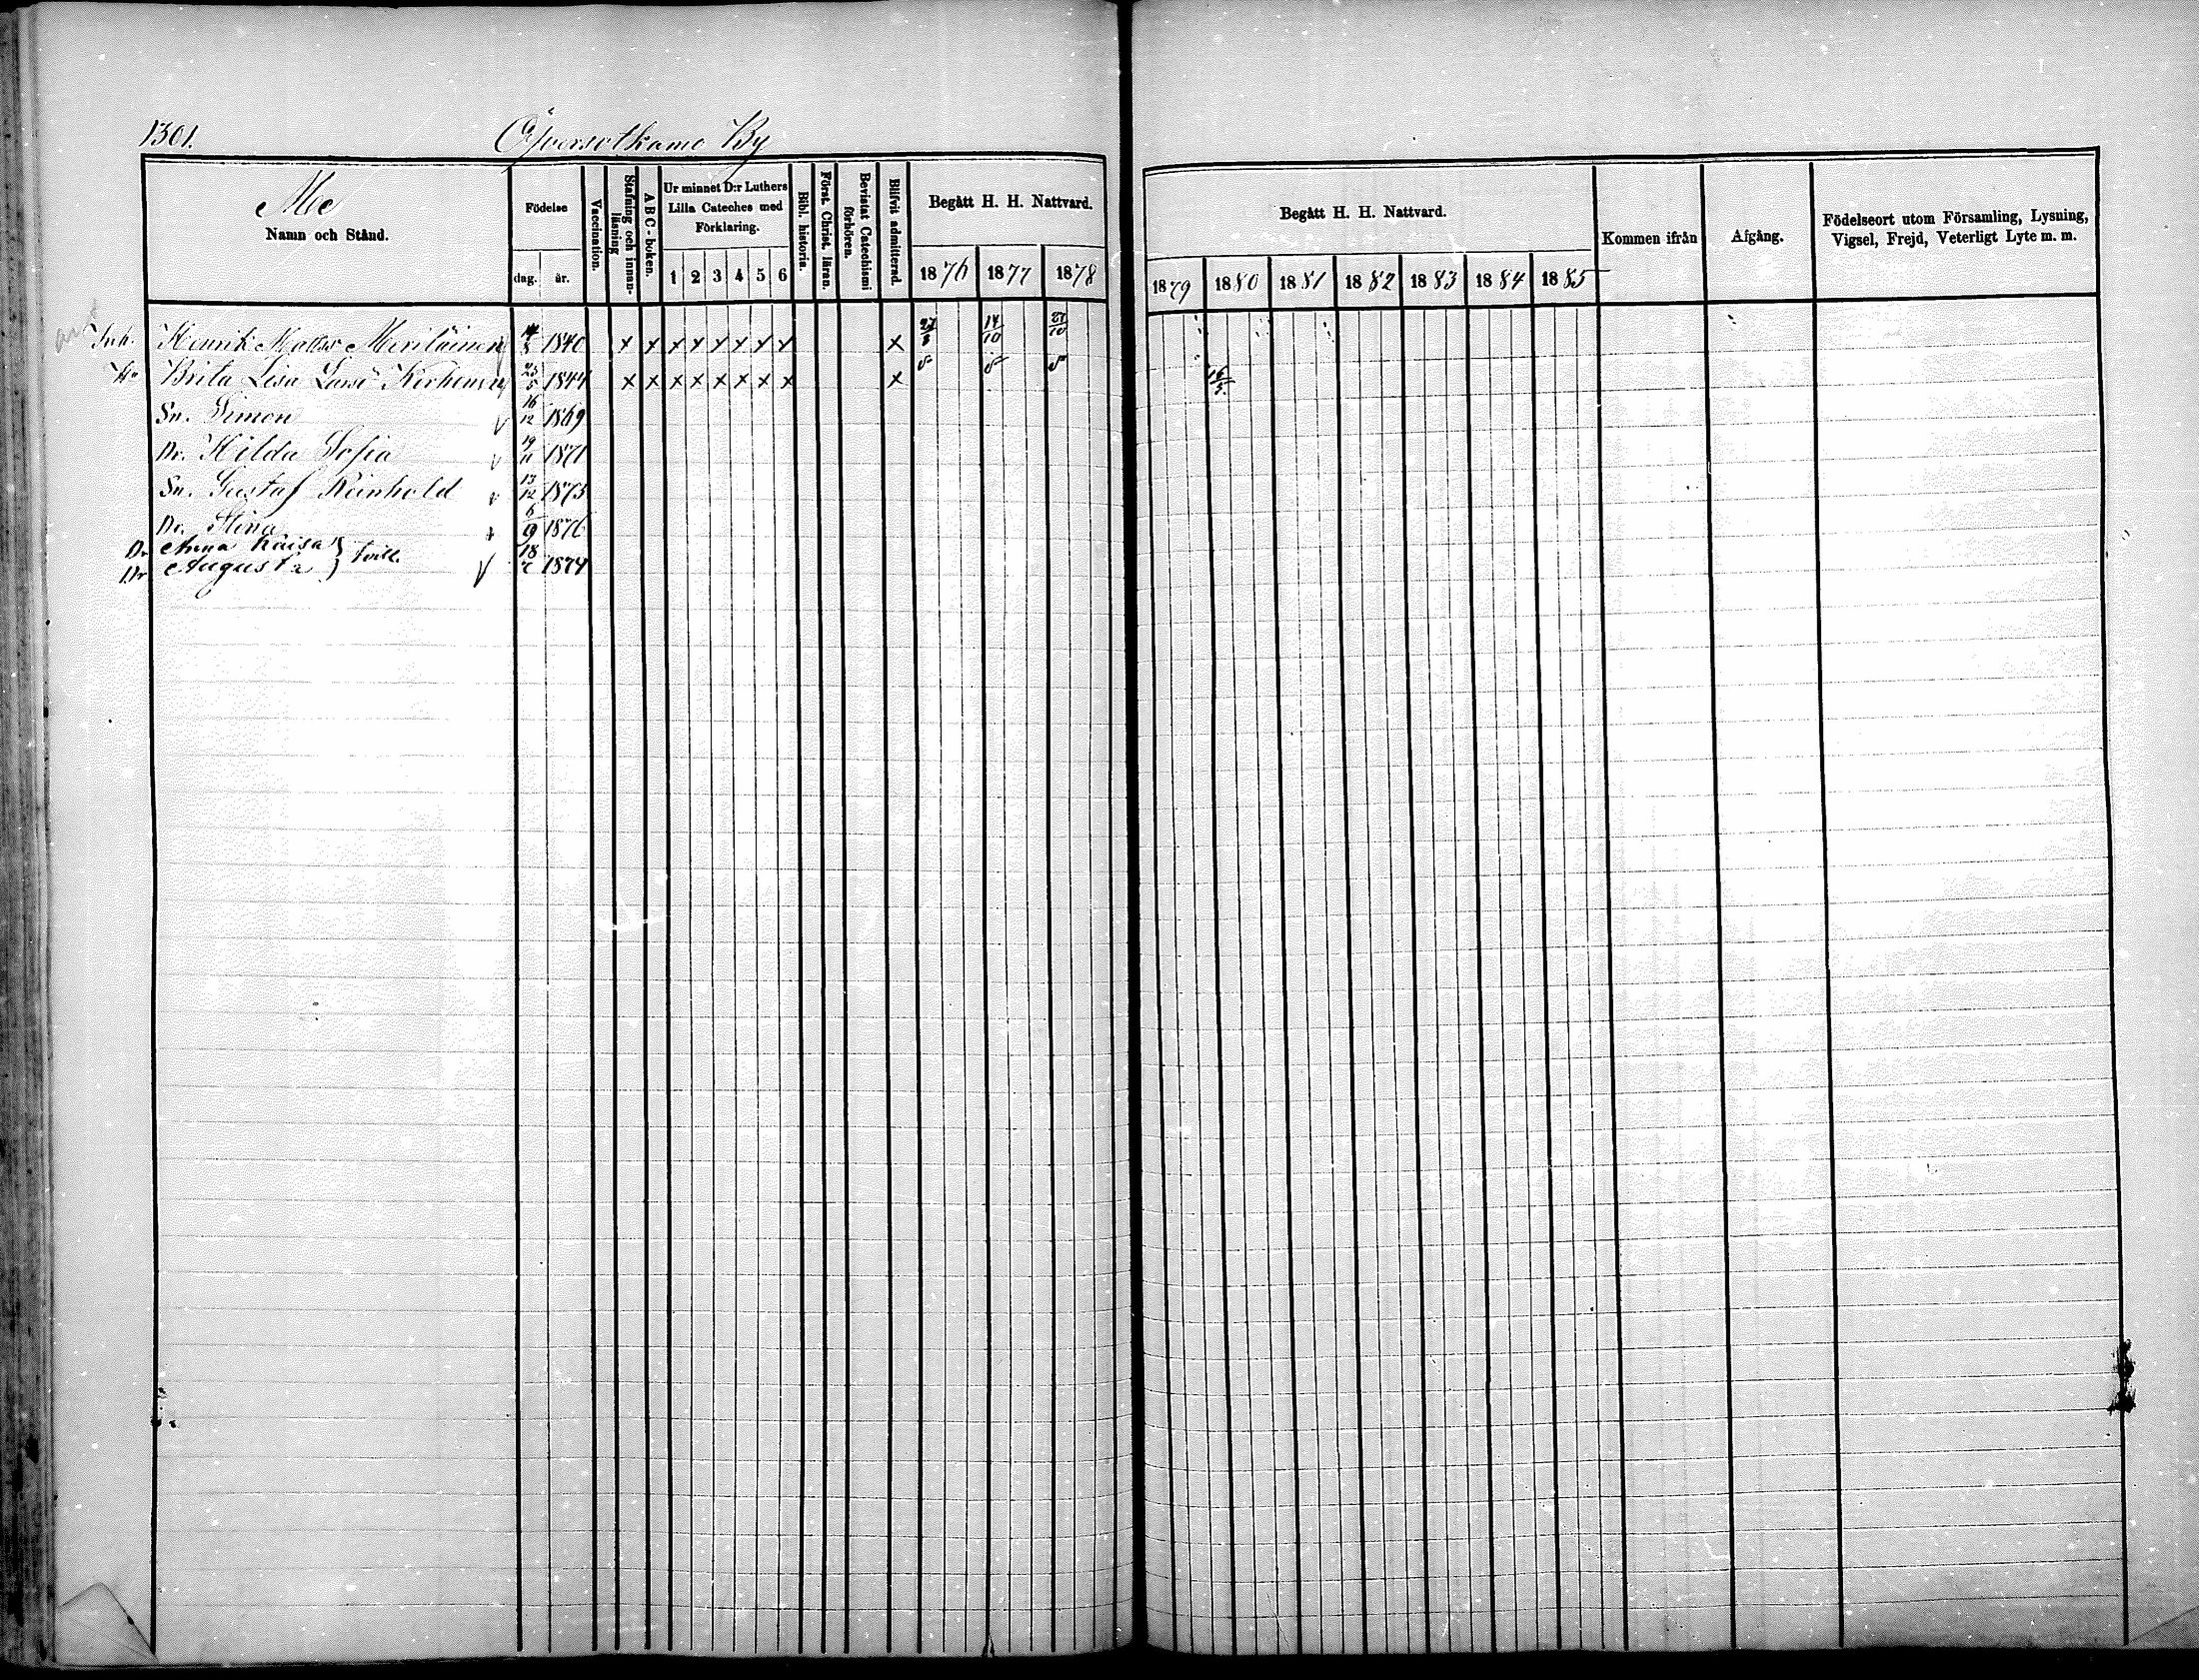 1301. Öfversotkamo By
Me
Namn och Stånd.
Födelse
dag. år.
Vaccination.
Stafning och innanläsning
A B C-boken.
Ur minnet D:r Luthers Lilla Cateches med Förklaring.
1 2 3 4 5 6
Bibl. historia.
Först. Christ. läran.
Bevistat Catechismi förhören.
Blifvit admitterad.
Begått H. H. Nattvard.
1876 1877 1878
Begått H. H. Nattvard.
1879 1880 1881 1882 1883 1884 1885
Kommen ifrån
Afgång.
Födelseort utom Församling, Lysning, Vigsel, Frejd, Veterligt Lyte m. m.
Inh. Henrik Matts: Meriläinen 1840 x x x x x x x x x 14/10 27/10
Hu Brita Lisa Larsd: Korhonen 1844 x x x x x x x x x 16/5
Sn. Simon 16/12 1869
Dr. Hilda Sofia 19/11 1871
Sn. Gustaf Reinhold 13/12 1873
Dr. Stina 6/9 1876
Dr Anna Kaisa
Dr Augusta } tvill. 18/7 1874